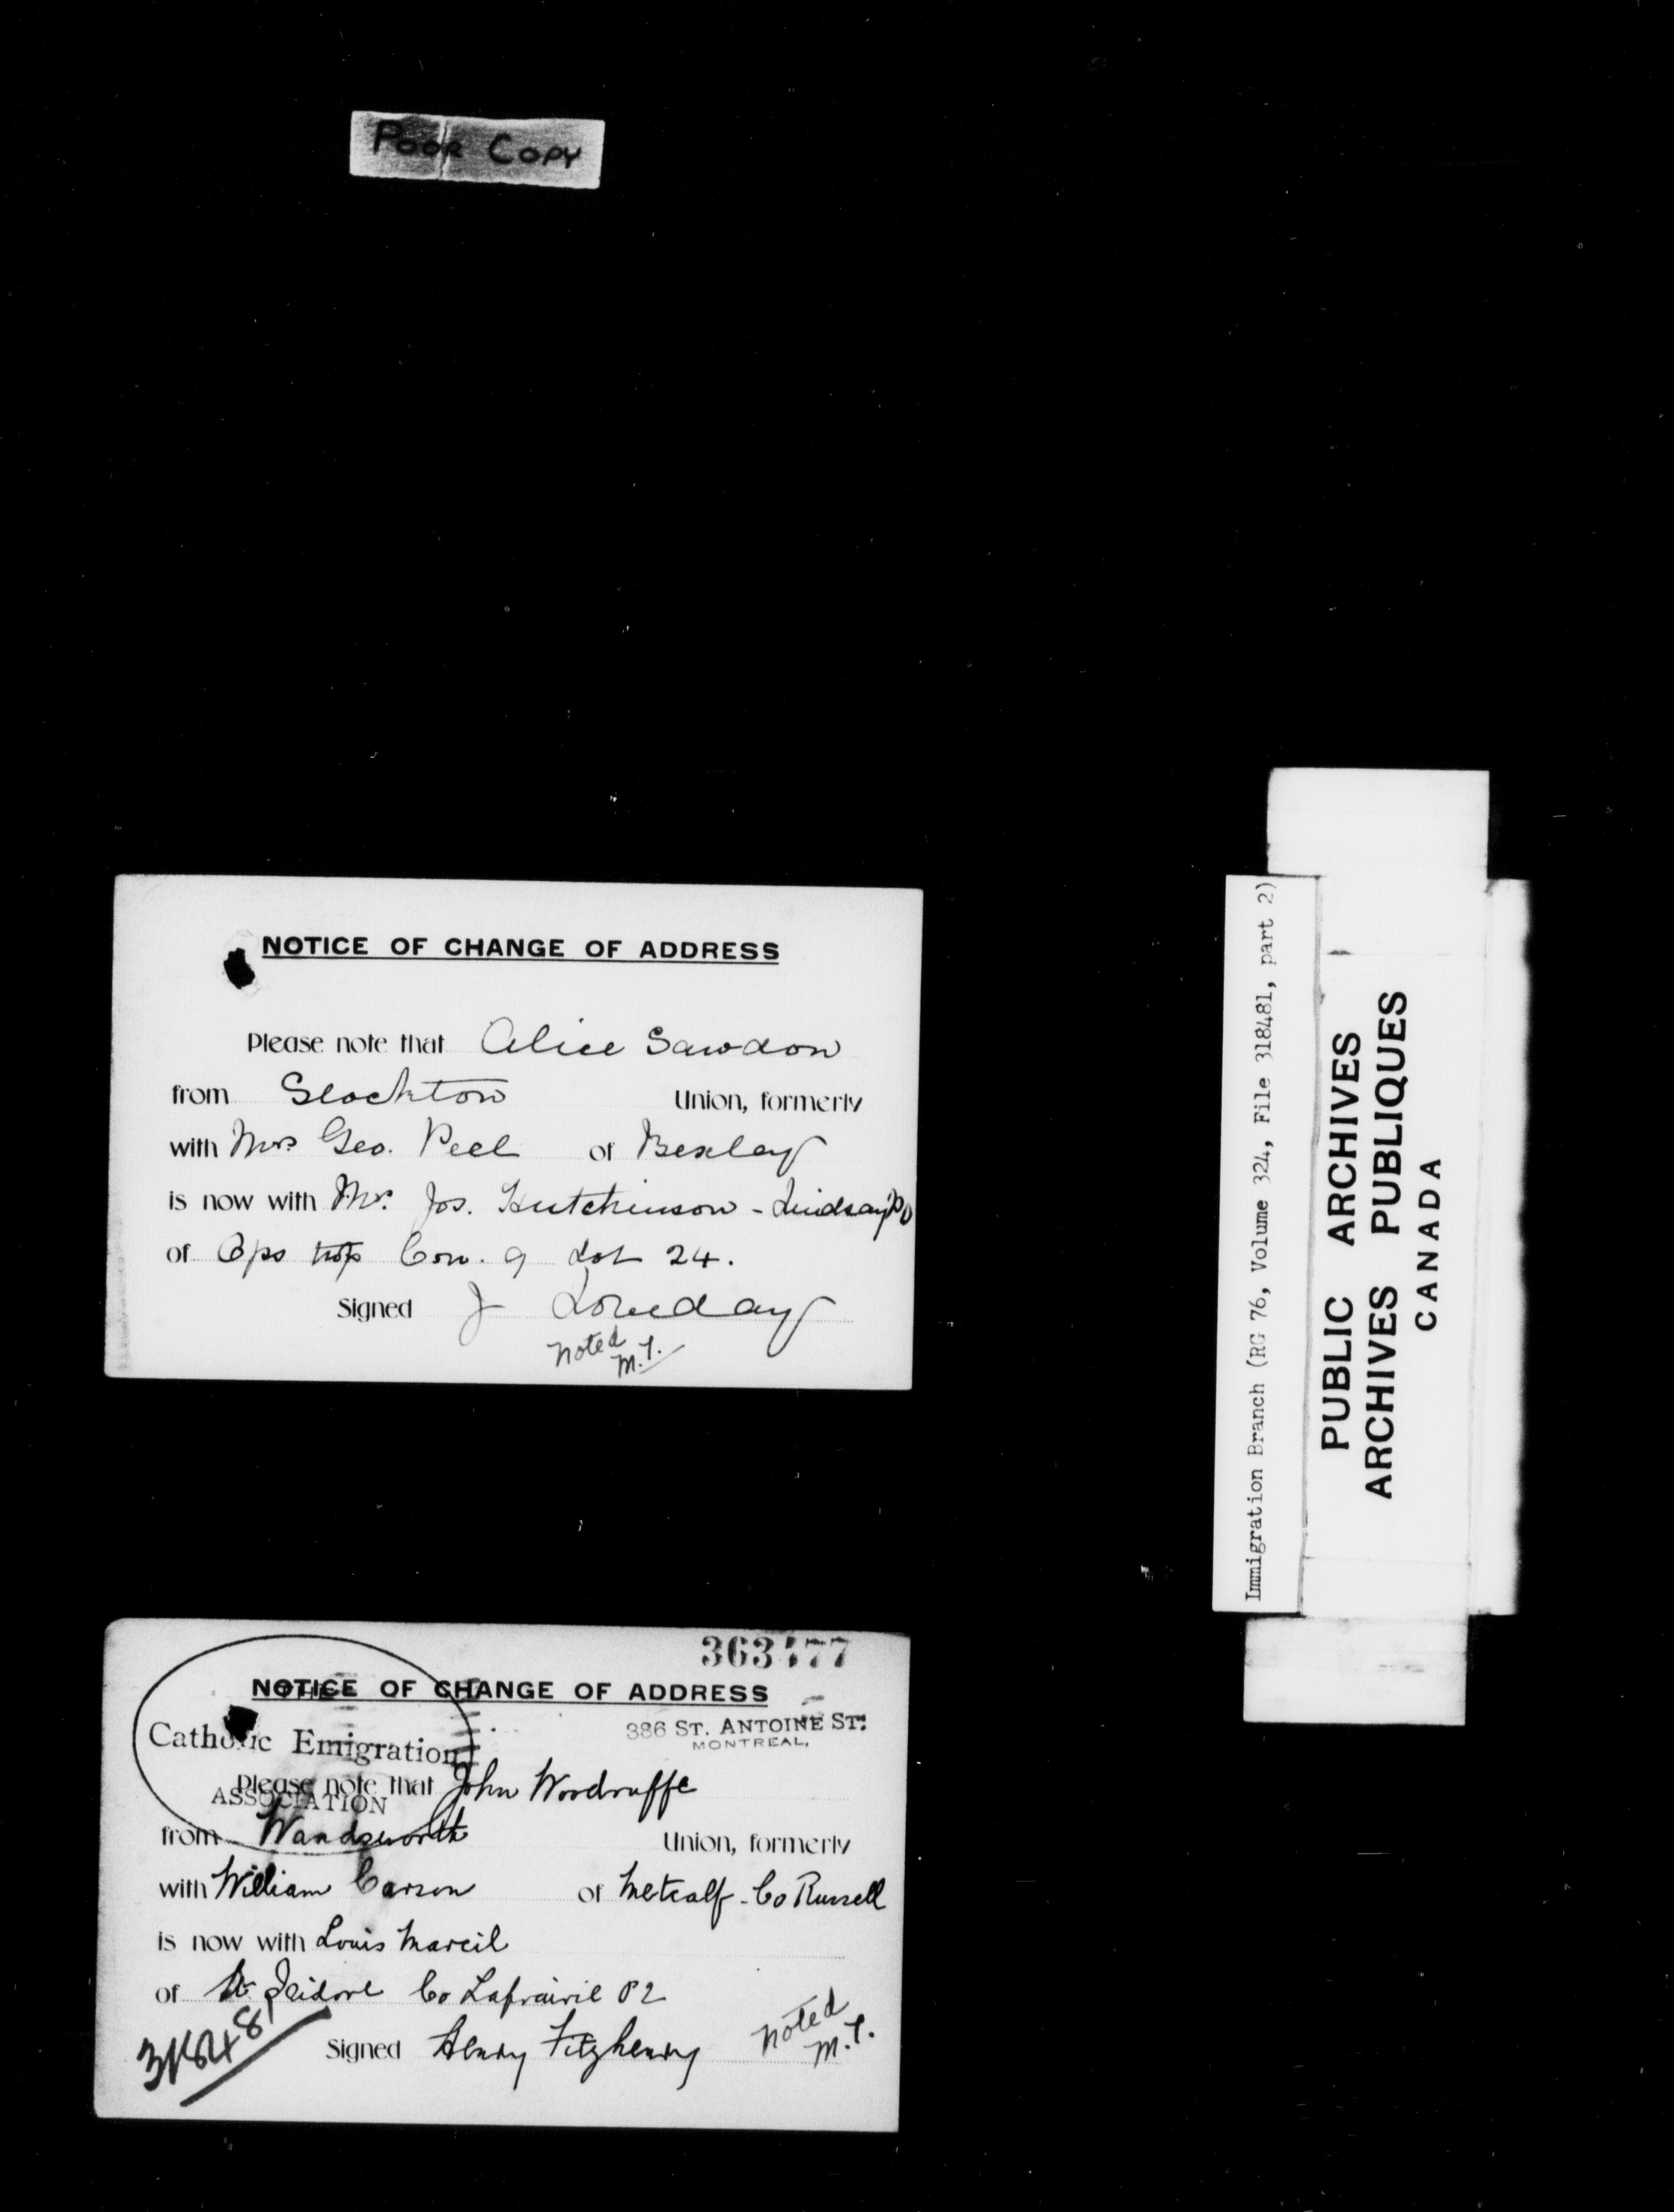 POOR COPY
NOTICE OF CHANGE OF ADDRESS
Please note that Alice Sawdon
from Stockton Union, formerly
with Mrs Geo. Peel of Bexley
is now with Mr. Jos. Hutchinson - Lindsay PO
of Ops Con. 9 Lot 24.
Signed J Loveday
Noted
M.T.
363477
NOTICE OF CHANGE OF ADDRESS
THE
386 ST. ANTOINE ST.
MONTREAL.
Catholic Emigration
ASSOCIATION
Please note that John Woodruffe
from Wandsworth Union, formerly
with William Carson of Metcalf - Co Russell
is now with Louis Marcil
of St Isidore Co Laprairie P2
318481
Signed Henry Fitzhenry
Noted
M.T.
Immigration Branch (RG 76, Volume 324, File 318481, part 2)
PUBLIC ARCHIVES
ARCHIVES PUBLIQUES
CANADA